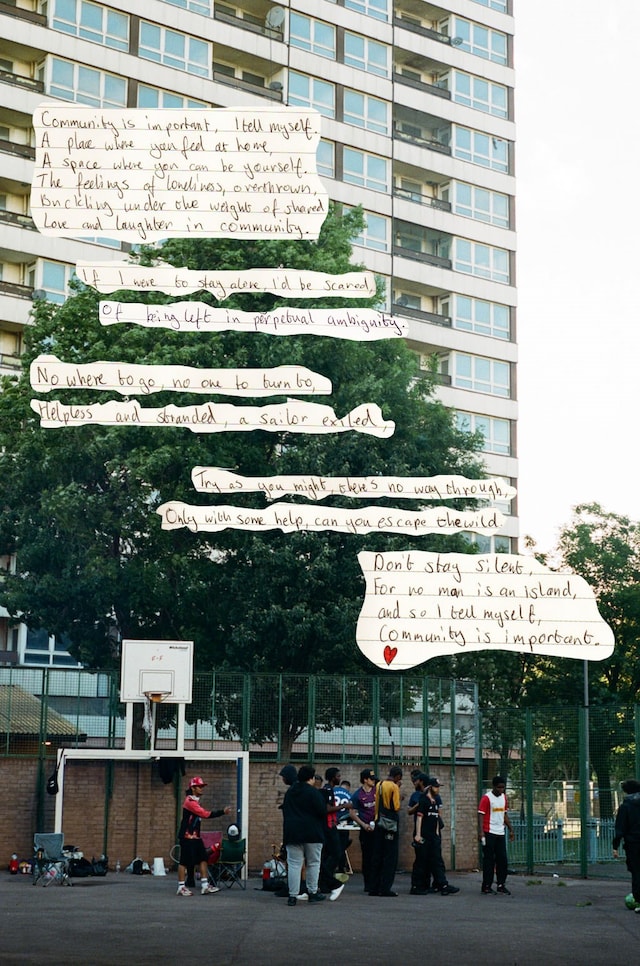 Community is important, I tell myself.
A place where you feel at home,
A space where you can be yourself.
The feelings of loneliness, overthrown,
Buckling under the weight of shared
Love and laughter in community.
If I were to stay alone, I'd be scared
Of being left in perpetual ambiguity.
No where to go, no one to turn to,
Helpless and stranded, a sailor exiled,
Try as you might, there's no way through,
Only with some help, can you escape the wild.
Don't stay silent,
For no man is an island,
and so I tell myself,
Community is important.